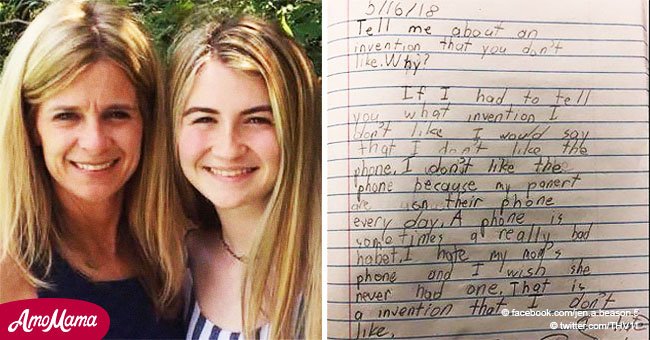 5/16/18
Tell me about an
invention that you don't
like. Why?
If I had to tell
you what invention I
don't like I would say
that I don't like the
phone. I don't like the
phone because my panert
are on their phone
every day. A phone is
sometimes a really bad
habet. I hate my mom's
phone and I wish she
never had one. That is
a invention that I don't
like.
AmoMama
© facebook.com/jen.a.beason.5
© twitter.com/THV11